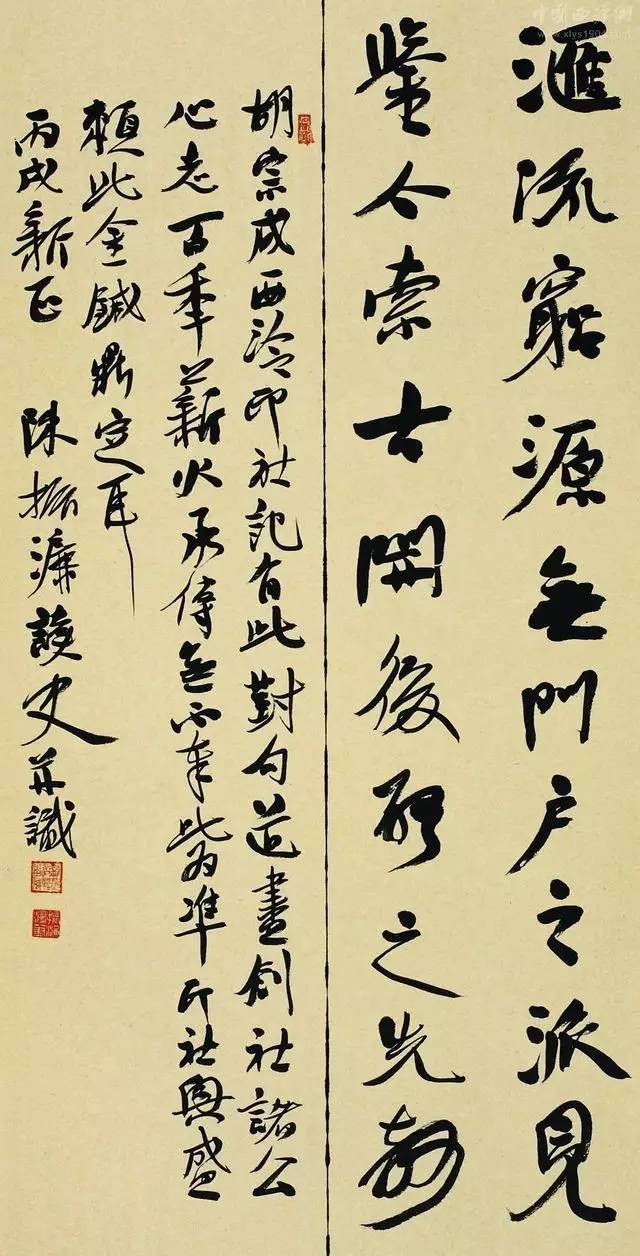 滙流窮源無門户之派見
鑒今索古開後啓之先
胡宗成西泠印社記有此對句道盡創社諸公
心志百年薪火承傳無不奉此為準印社興盛
賴此金鍼鼎定耳
丙戌新正 陳振濂讀史并識
中国西泠網